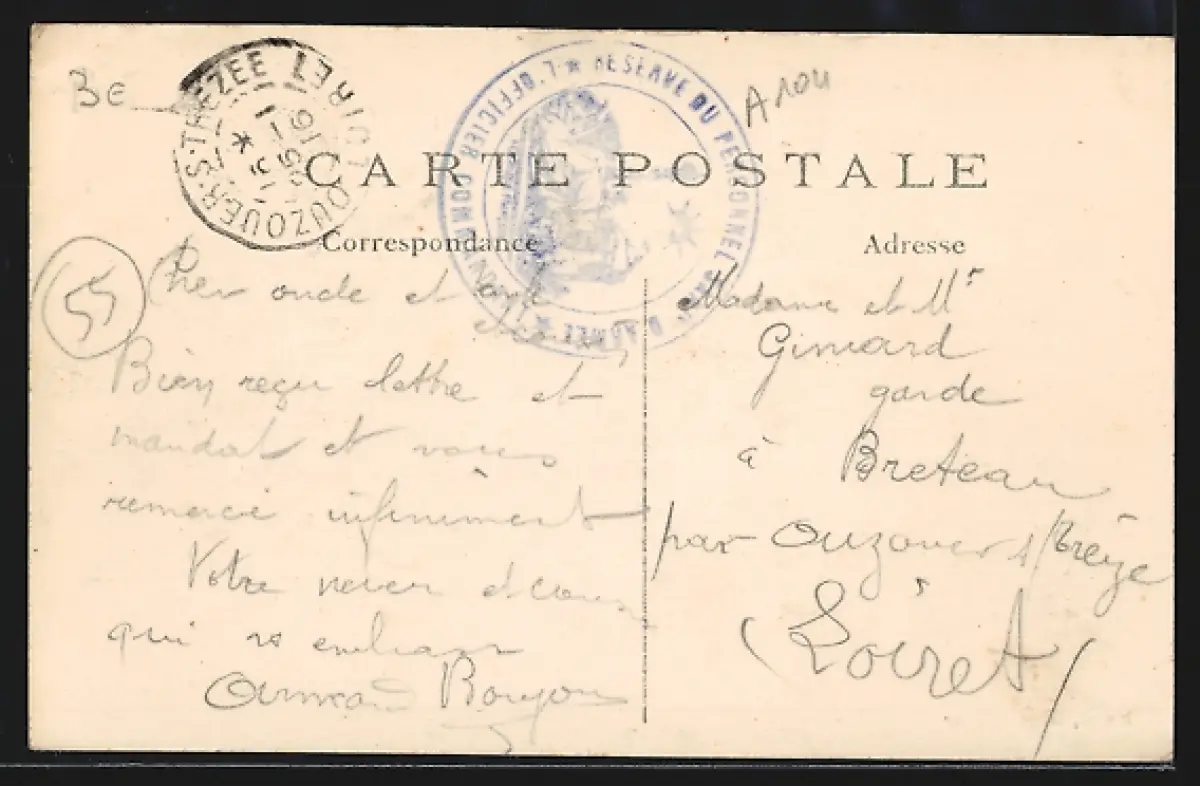 Be
A 1011
OUZOUER-S-TREZEE LOIRET
16
L'OFFICIER COMMANDANT * RESERVE DU PERSONNEL D'ARMEE *
CARTE POSTALE
Correspondance
Adresse
55
Cher oncle et
Bien reçu lettre et
mandat et vous
remercie infiniment
Votre neveu et cousin
qui vs embrasse
Armand Bougon
Madame et Mr
Gimard
garde
à Breteau
par Ouzouer s/Trézée
(Loiret)